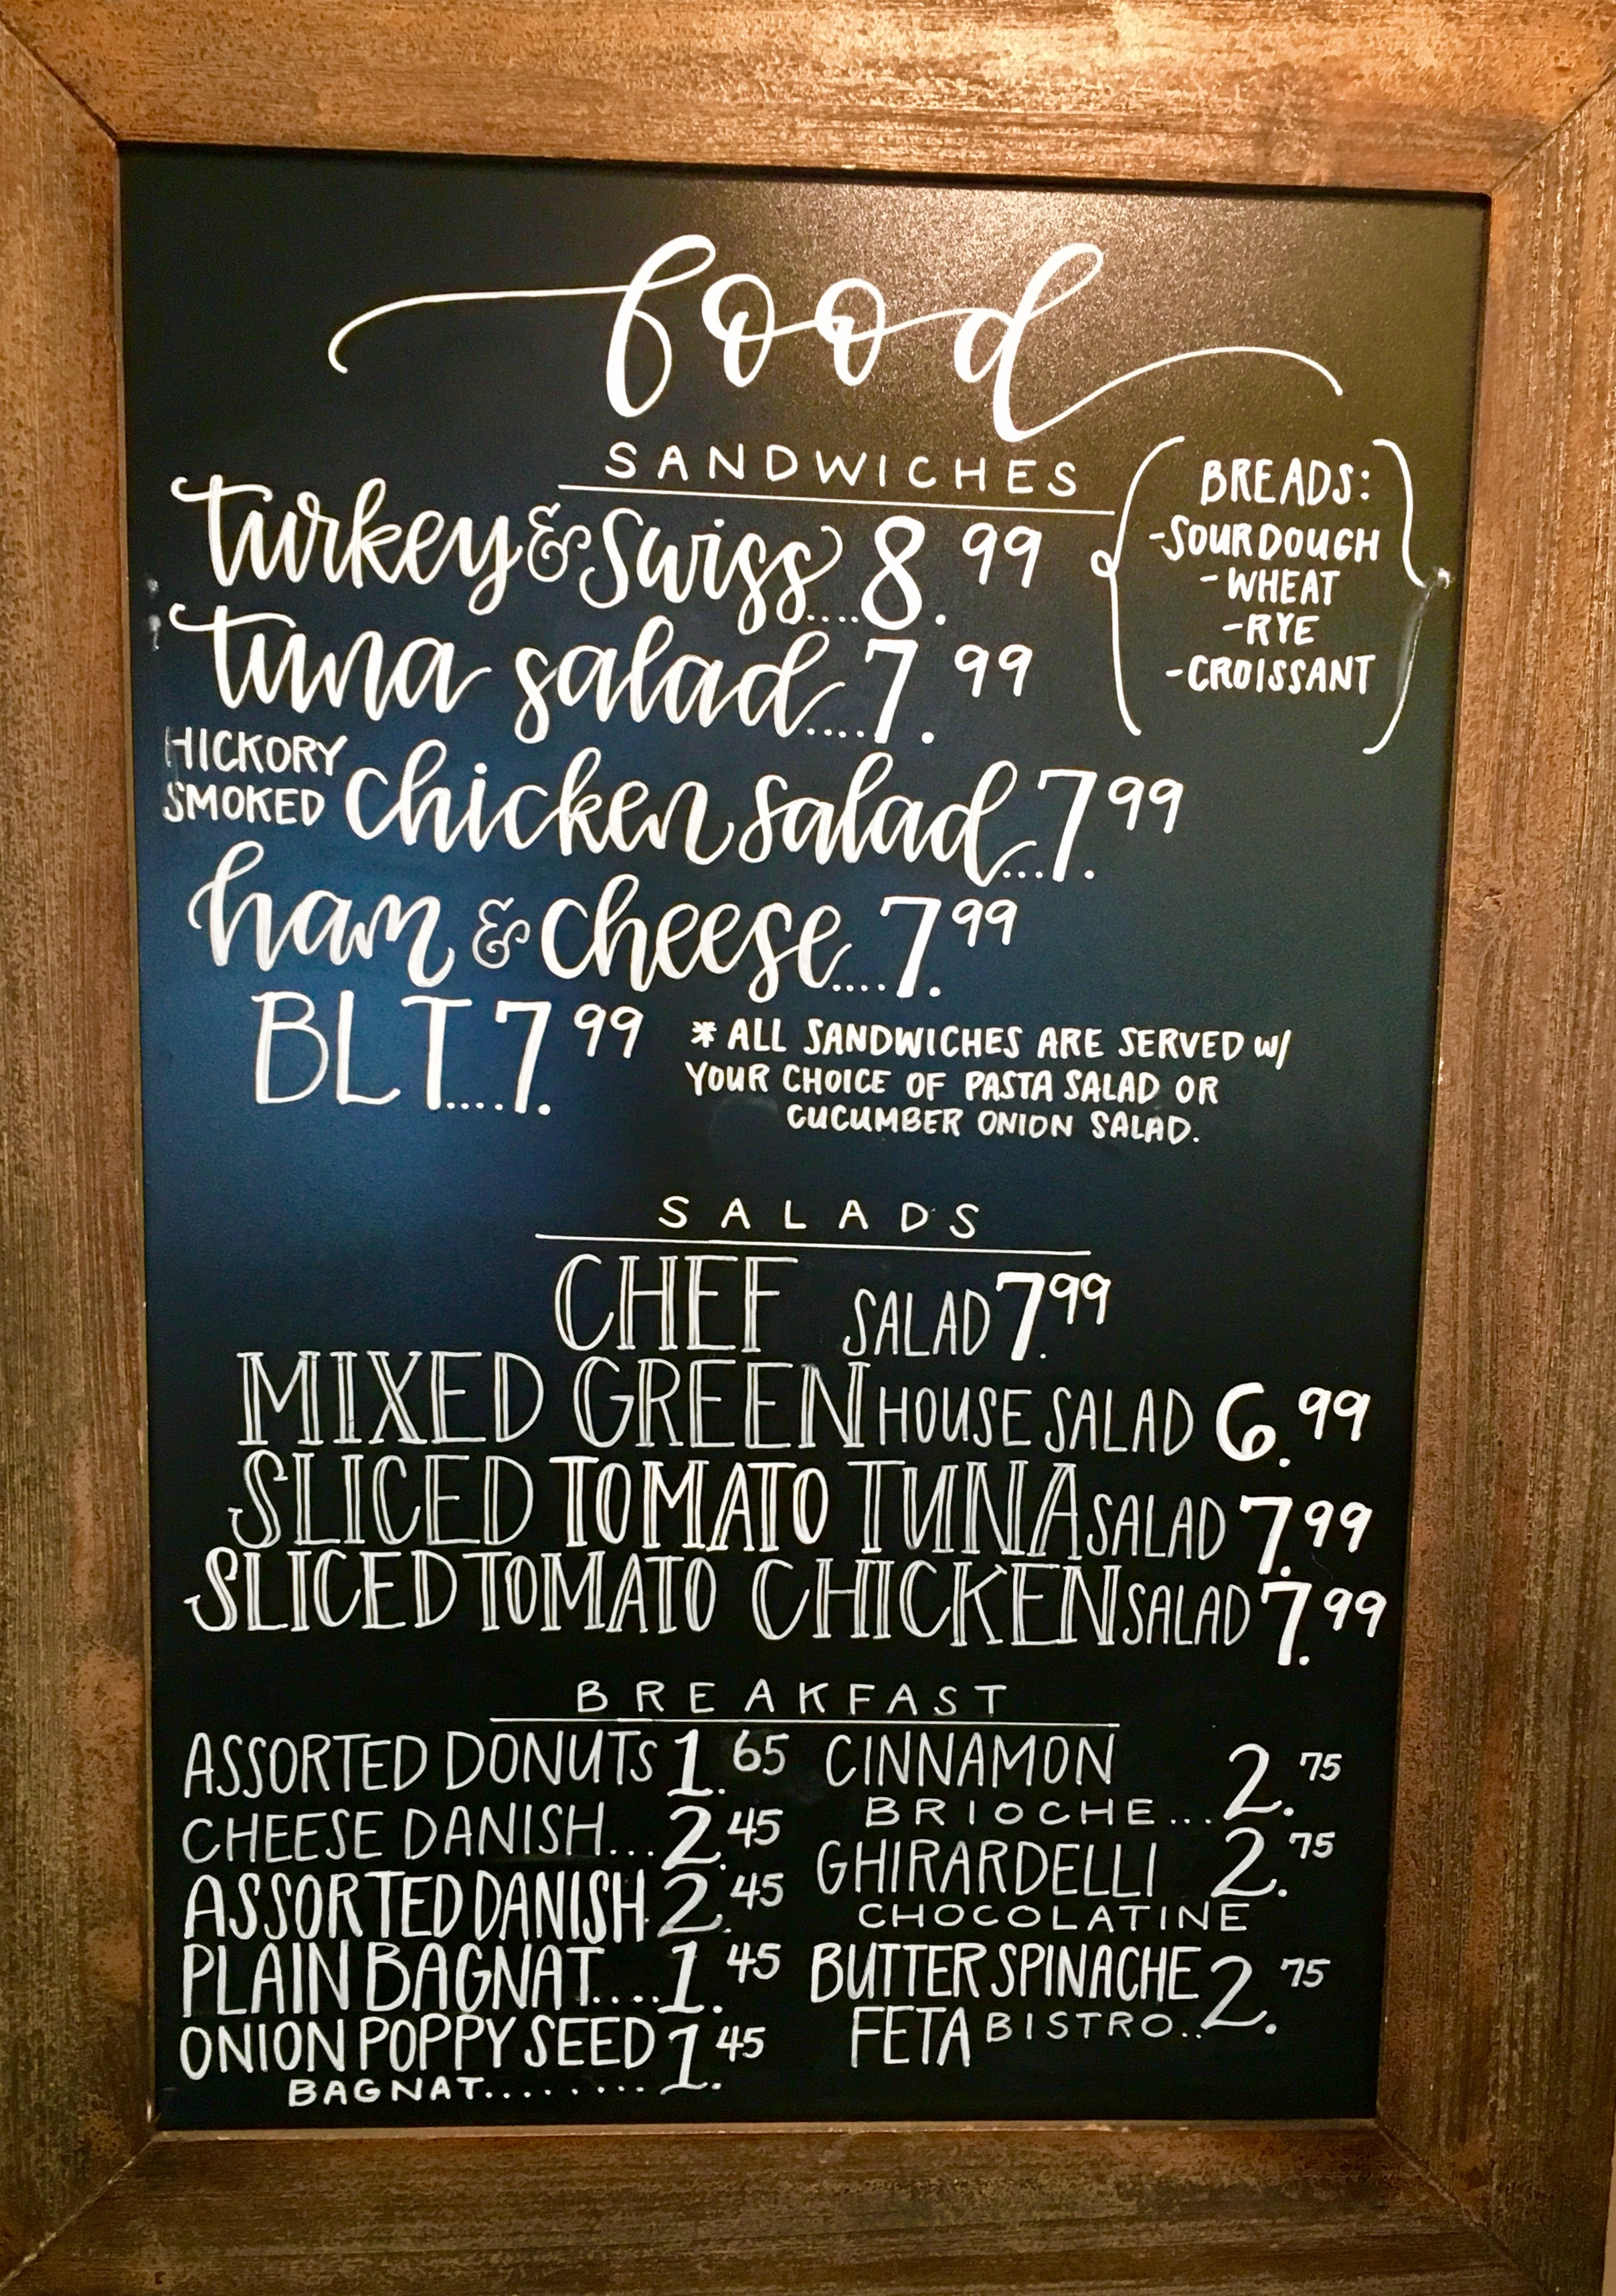 food
SANDWICHES
turkey & Swiss....8.99
tuna salad....7.99
HICKORY
SMOKED chicken salad...7.99
ham & cheese....7.99
BLT....7.99
BREADS:
-SOURDOUGH
-WHEAT
-RYE
-CROISSANT
* ALL SANDWICHES ARE SERVED W/
YOUR CHOICE OF PASTA SALAD OR
CUCUMBER ONION SALAD.
SALADS
CHEF SALAD 7.99
MIXED GREEN HOUSE SALAD 6.99
SLICED TOMATO TUNA SALAD 7.99
SLICED TOMATO CHICKEN SALAD 7.99
BREAKFAST
ASSORTED DONUTS 1.65
CHEESE DANISH...2.45
ASSORTED DANISH 2.45
PLAIN BAGNAT....1.45
ONION POPPY SEED 1.45
BAGNAT.........
CINNAMON 2.75
BRIOCHE...
GHIRARDELLI 2.75
CHOCOLATINE
BUTTER SPINACHE 2.75
FETA BISTRO..